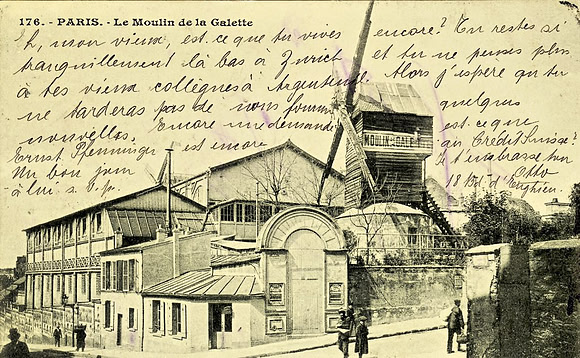 176. - PARIS. - Le Moulin de la Galette
Eh, mon vieux, est-ce que tu vives encore? Tu restes si
tranquillement là bas à Zurich et tu ne penses plus
à tes vieux collègues à Argenteuil. Alors j'espère qu tu
ne tarderas pas de nous fournir quelques
nouvelles. Encore une demande est ce que
Ernst Pfenninger est encore au Crédit Suisse?
Un bon jour Je t'embrasse ton
à lui s.v.p. Otto
18 Bd. d'Enghien.
MOULIN GALETTE